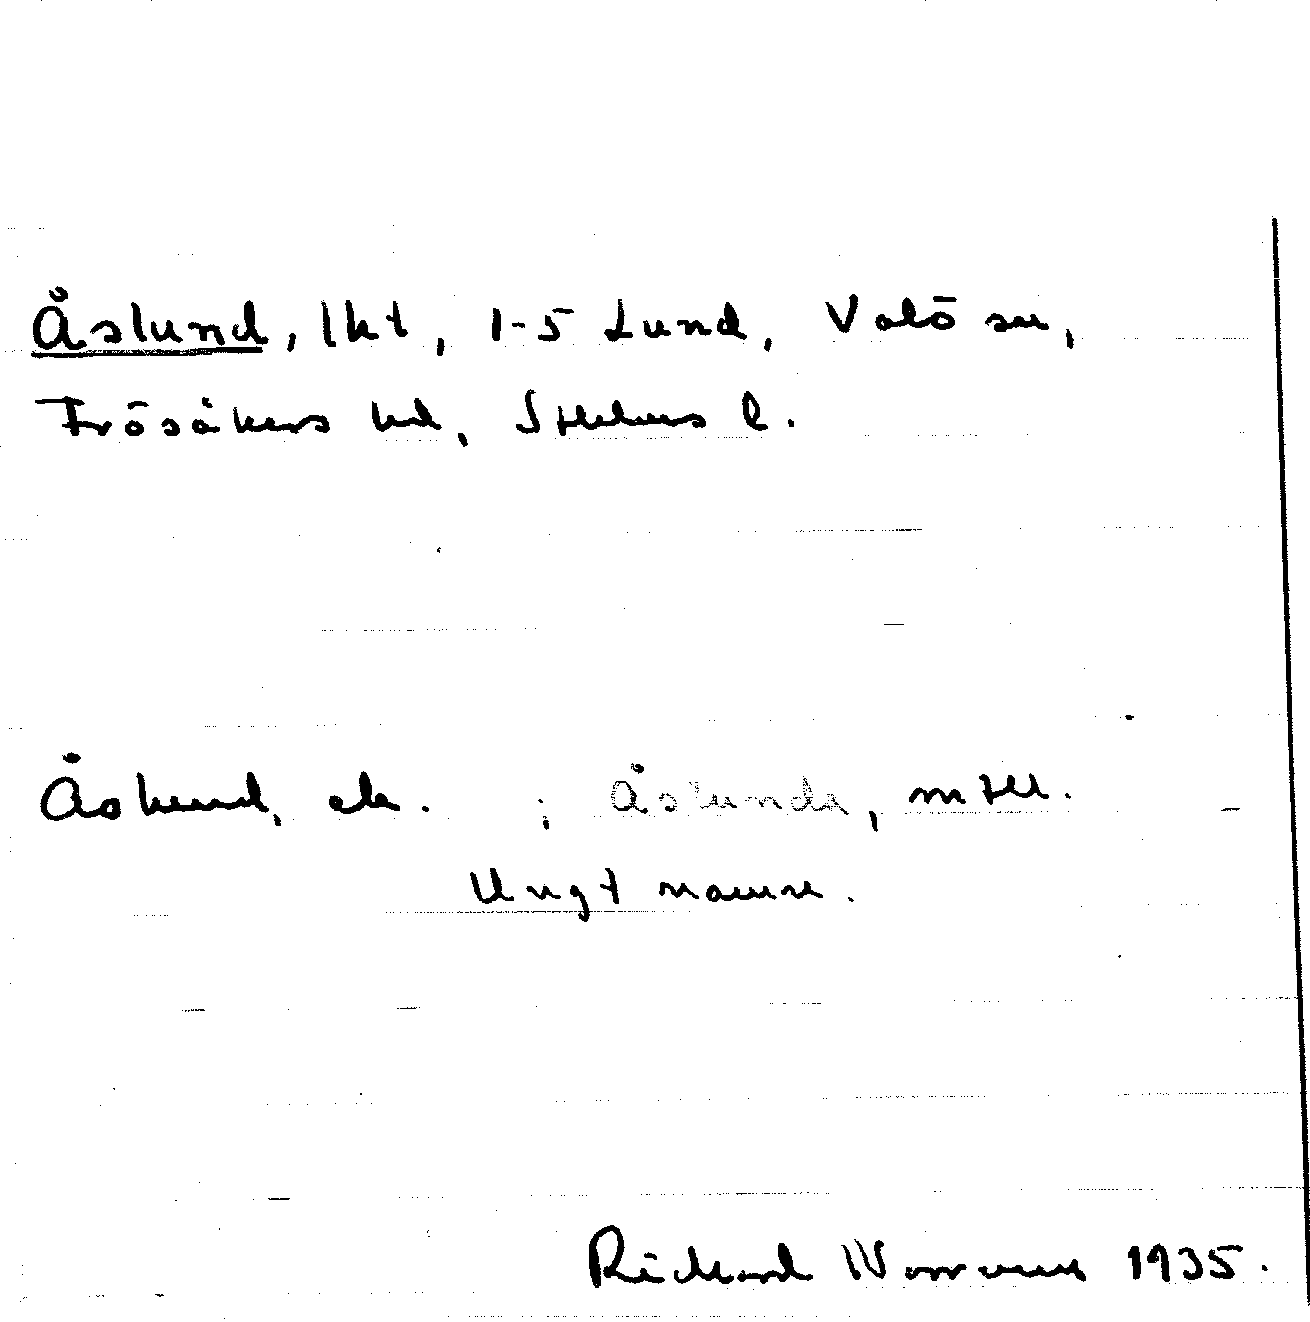 Åslund, lht, 1-5 Lund, Valö sn,
Frösåkers hd, Sthlms l.
Åslund, ek. ; Åslunda, mtll.
Ungt namn.
Rickard 1935.